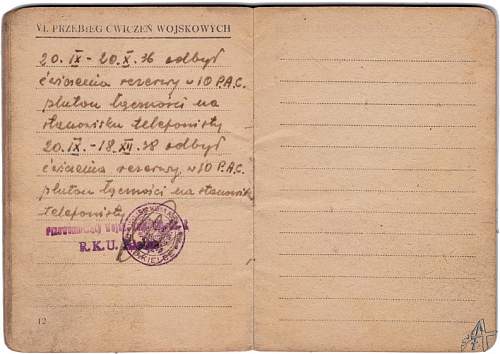 VI. PRZEBIEG ĆWICZEŃ WOJSKOWYCH
20. IX - 20. X. 36 odbył
ćwiczenia rezerwy w 10 P.A.C.
pluton łączności na
stanowisku telefonisty
20. IX. - 18 XII 38 odbył
ćwiczenia rezerwy w 10 P.A.C.
pluton łączności na stanowisk
telefonisty
R.K.U.
KIELCE
12